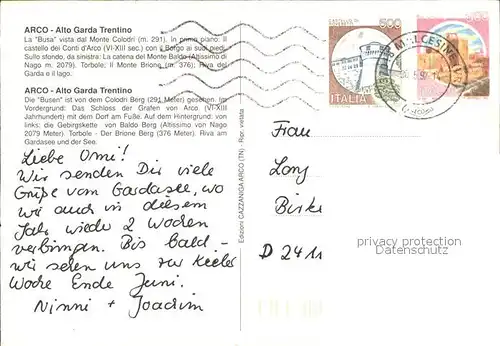 ARCO - Alto Garda Trentino
La "Busa" vista dal Monte Colodri (m. 291). In primo piano: Il
castello dei Conti d'Arco (VI-XIII sec.) con il Borgo ai suoi piedi.
Sullo sfondo, da sinistra: La catena del Monte Baldo (Altissimo di
Nago m. 2079). Torbole: Il Monte Brione (m. 376). Riva del
Garda e il lago.
ARCO - Alto Garda Trentino
Die "Busen" ist von dem Colodri Berg (291 Meter) gesehen. Im
Vordergrund: Das Schloss der Grafen von Arco (VI-XIII
Jahrhundert) mit dem Dorf am Fuße. Auf dem Hintergrund: von
links: die Gebirgskette von Baldo Berg (Altissimo von Nago
2079 Meter). Torbole - Der Brione Berg (376 Meter). Riva am
Gardasee und der See.
Liebe Omi!
Wir senden Dir viele
Grüße vom Gardasee, wo
wir auch in diesem
Jahr wieder 2 Wochen
verbringen. Bis bald -
wir sehen uns zur Kieler
Woche Ende Juni.
Ninni + Joachim
Edizioni CAZZANIGA ARCO (TN) - Ripr. vietata
500
ITALIA
MALCESINE (VR)
Frau
Long
Birke
D 2411
Privacy protection
Datenschutz